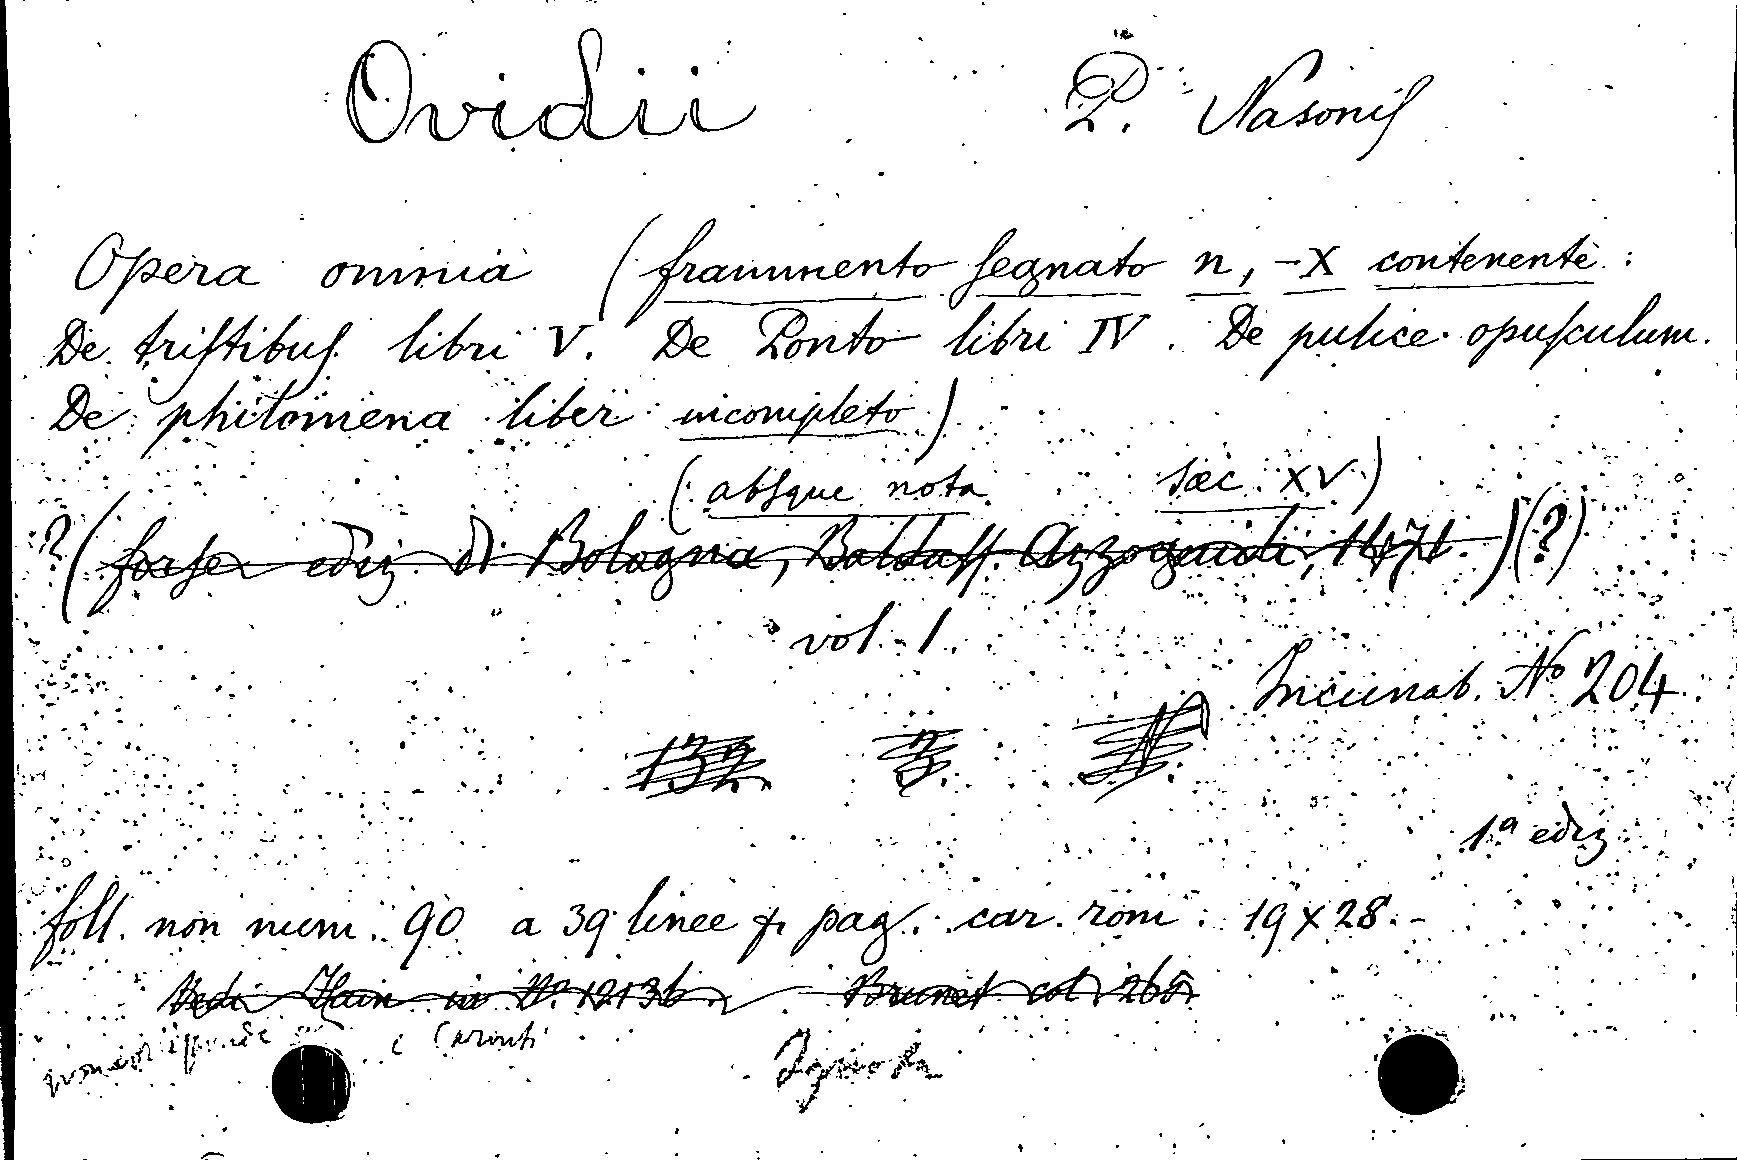 Ovidii P. Nasonis
Opera omnia (frammento segnato n, -X contenente:
De tristibus libri V. De Ponto libri IV. De pulice opusculum.
De philomena liber incompleto)
(absque nota sæc XV)
? (forse ediz di Bologna, Baldass. Azzoguidi, 1471.) (?)
vol. 1.
Incunab. Nº 204
132 3.
1ª ediz
foll. non num. 90 a 39 linee p. pag. car. rom. 19 x 28.-
Vedi Hain in Nº 12136. Brunet col 268
non corrisponde